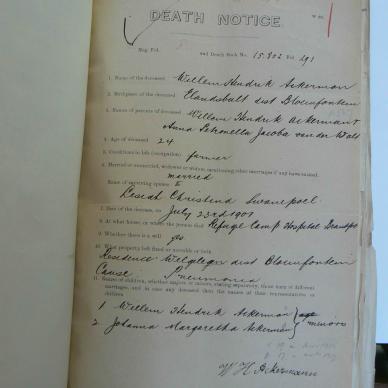 DEATH NOTICE.
and Death Book No. 15.802 Fol. 291
1. Name of the deceased Willem Hendrik Ackerman
2. Birthplace of the deceased dist Bloemfontein
3. Names of parents of deceased Willem Hendrik Ackerman &
Anna Petronella Jacoba van der Walt
4. Age of deceased 24
5. Condition in life (occupation) farmer
6. Married or unmarried, widower or widow, mentioning other marriages if any have existed.
married
Name of surviving spouse
Christina Swanepoel
7. Date of the decease, on July 23rd 1901
8. At what house, or where the person died Refuge Camp Hospital
9. Whether there is a will yes
10. What property left fixed or movable or both
Residence Welgelegen dist Bloemfontein
Cause Pneumonia
11. Names of children, whether majors or minors, stating separately, those born of different
marriages, and in case any deceased then the names of their representatives or
children
1 Willem Hendrik Ackerman
2 Johanna Margaretha Ackerman minors
W H Ackermann